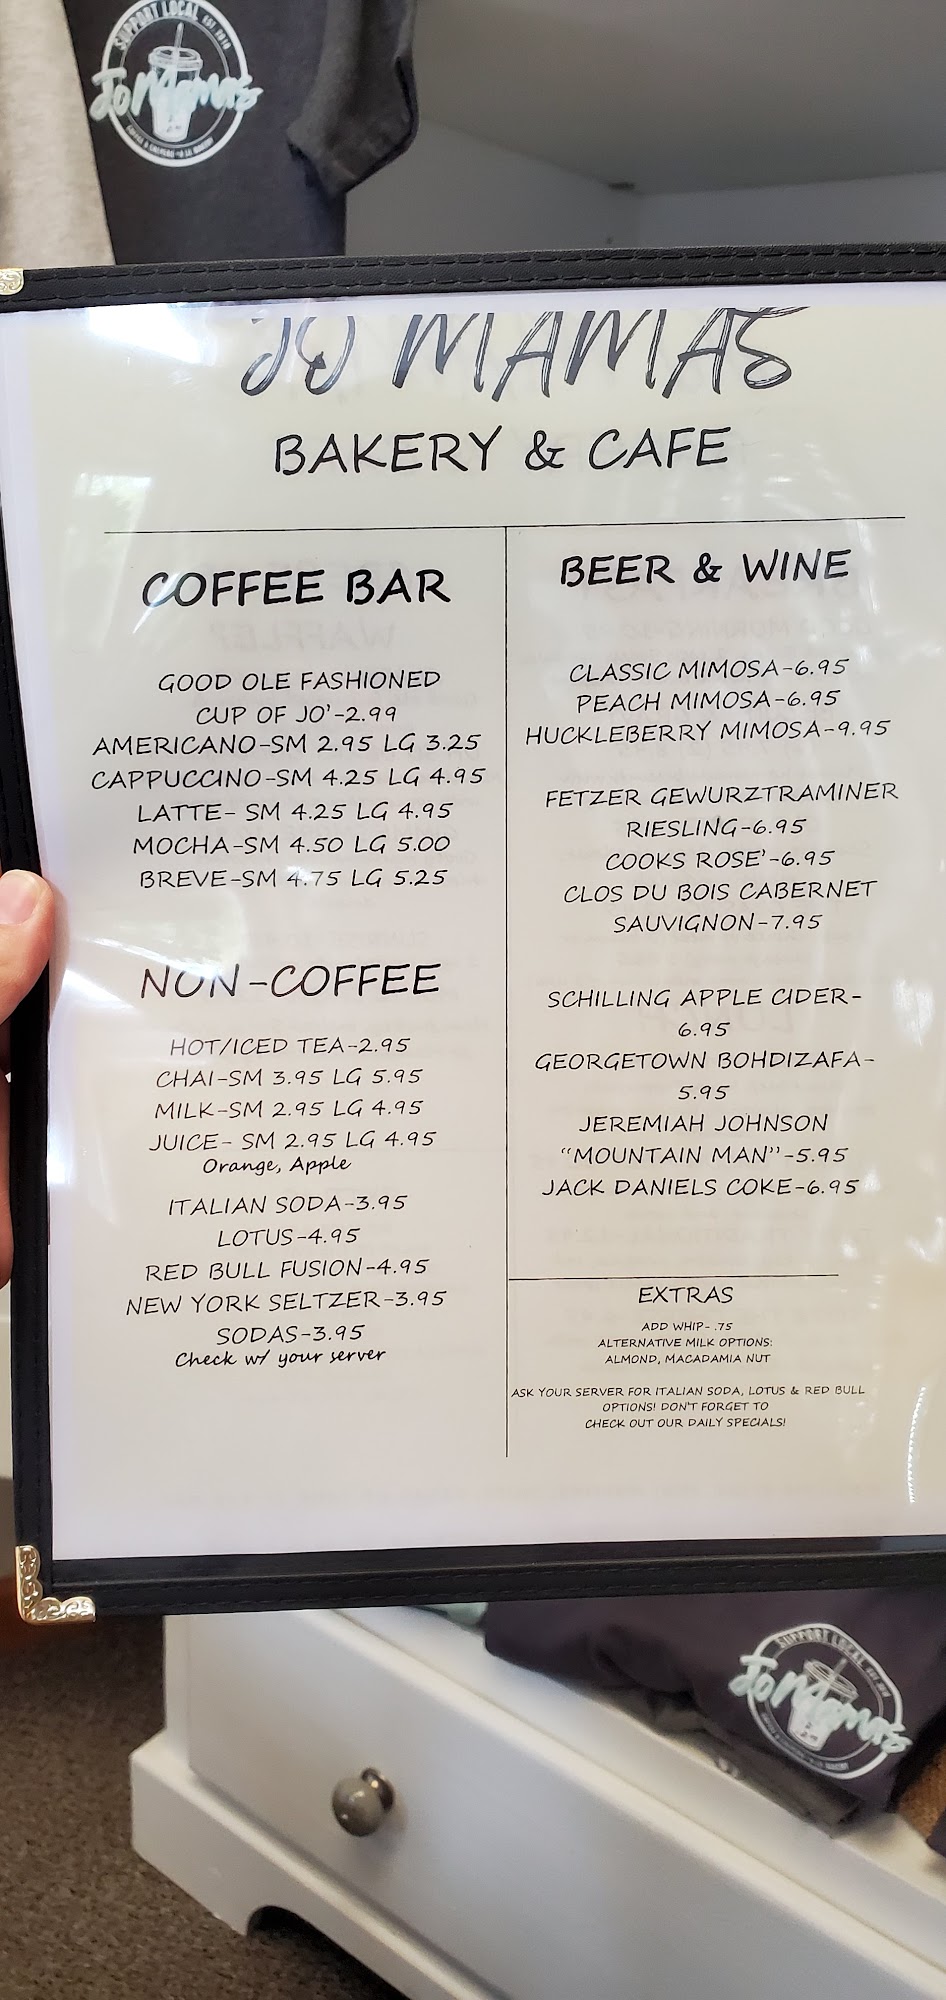 SUPPORT LOCAL EST 2018
Jo Mamas
JO MAMAS
BAKERY & CAFE
COFFEE BAR
GOOD OLE FASHIONED
CUP OF JO'-2.99
AMERICANO-SM 2.95 LG 3.25
CAPPUCCINO-SM 4.25 LG 4.95
LATTE- SM 4.25 LG 4.95
MOCHA-SM 4.50 LG 5.00
BREVE-SM 4.75 LG 5.25
NON-COFFEE
HOT/ICED TEA-2.95
CHAI-SM 3.95 LG 5.95
MILK-SM 2.95 LG 4.95
JUICE- SM 2.95 LG 4.95
Orange, Apple
ITALIAN SODA-3.95
LOTUS-4.95
RED BULL FUSION-4.95
NEW YORK SELTZER-3.95
SODAS-3.95
Check w/ your server
BEER & WINE
CLASSIC MIMOSA-6.95
PEACH MIMOSA-6.95
HUCKLEBERRY MIMOSA-9.95
FETZER GEWURZTRAMINER
RIESLING-6.95
COOKS ROSE'-6.95
CLOS DU BOIS CABERNET
SAUVIGNON-7.95
SCHILLING APPLE CIDER-
6.95
GEORGETOWN BOHDIZAFA-
5.95
JEREMIAH JOHNSON
"MOUNTAIN MAN"-5.95
JACK DANIELS COKE-6.95
EXTRAS
ADD WHIP- .75
ALTERNATIVE MILK OPTIONS:
ALMOND, MACADAMIA NUT
ASK YOUR SERVER FOR ITALIAN SODA, LOTUS & RED BULL
OPTIONS! DON'T FORGET TO
CHECK OUT OUR DAILY SPECIALS!
SUPPORT LOCAL
Jo Mamas